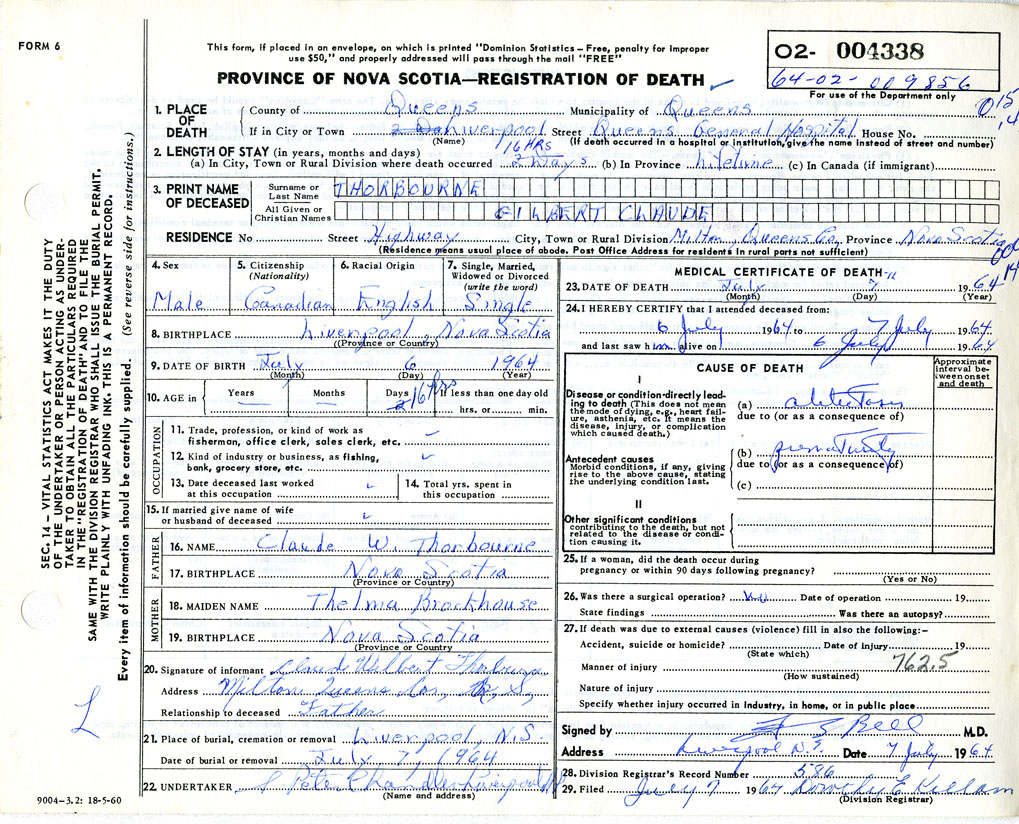 FORM 6
This form, if placed in an envelope, on which is printed "Dominion Statistics – Free, penalty for improper
use $50," and properly addressed will pass through the mail "FREE"
PROVINCE OF NOVA SCOTIA—REGISTRATION OF DEATH
O2- 004338
64-02-009856
For use of the Department only
015
14
1. PLACE OF DEATH
County of Queens Municipality of Queens
If in City or Town Liverpool Street Queens General Hospital House No.
(Name) (If death occurred in a hospital or institution, give the name instead of street and number)
2. LENGTH OF STAY (in years, months and days) 16 HRS
(a) In City, Town or Rural Division where death occurred 2 Days (b) In Province Lifetime (c) In Canada (if immigrant)
3. PRINT NAME OF DECEASED
Surname or Last Name THORBOURNE
All Given or Christian Names GILBERT CLAUDE
RESIDENCE No Street Highway City, Town or Rural Division Milton, Queens Co, Province Nova Scotia
(Residence means usual place of abode. Post Office Address for residents in rural parts not sufficient)
4. Sex Male
5. Citizenship (Nationality) Canadian
6. Racial Origin English
7. Single, Married, Widowed or Divorced (write the word) Single
8. BIRTHPLACE Liverpool, Nova Scotia
(Province or Country)
9. DATE OF BIRTH July 6 1964
(Month) (Day) (Year)
10. AGE in Years Months Days 2 16 hrs If less than one day old
hrs. or min.
OCCUPATION
11. Trade, profession, or kind of work as
fisherman, office clerk, sales clerk, etc.
12. Kind of industry or business, as fishing,
bank, grocery store, etc.
13. Date deceased last worked
at this occupation
14. Total yrs. spent in
this occupation
15. If married give name of wife
or husband of deceased
FATHER
16. NAME Claude W. Thorbourne
17. BIRTHPLACE Nova Scotia
(Province or Country)
MOTHER
18. MAIDEN NAME Thelma Brockhouse
19. BIRTHPLACE Nova Scotia
(Province or Country
20. Signature of informant Claude Wilbert Thorbourne
Address Milton Queens Co., N. S,
Relationship to deceased Father
21. Place of burial, cremation or removal Liverpool, N.S.
Date of burial or removal July 7, 1964
22. UNDERTAKER S Peter Chandler Liverpool NS
(Name and address)
9004-3.2: 18-5-60
MEDICAL CERTIFICATE OF DEATH
23. DATE OF DEATH July 7 1964
(Month) (Day) (Year)
24. I HEREBY CERTIFY that I attended deceased from:
6 July 1964 to 7 July 1964
and last saw him alive on 6 July 1964
CAUSE OF DEATH
Approximate interval between onset and death
I
Disease or condition directly leading to death (This does not mean the mode of dying, e.g., heart failure, asthenia, etc. It means the disease, injury, or complication which caused death.)
(a) atelectasis
due to (or as a consequence of)
Antecedent causes
Morbid conditions, if any, giving rise to the above cause, stating the underlying condition last.
(b) prematurity
due to (or as a consequence of)
(c)
II
Other significant conditions
contributing to the death, but not related to the disease or condition causing it.
25. If a woman, did the death occur during
pregnancy or within 90 days following pregnancy?
(Yes or No)
26. Was there a surgical operation? No Date of operation 19
State findings Was there an autopsy?
27. If death was due to external causes (violence) fill in also the following:–
Accident, suicide or homicide? Date of injury 19
(State which)
762.5
Manner of injury
(How sustained)
Nature of injury
Specify whether injury occurred in industry, in home, or in public place
Signed by Bell M.D.
Address Liverpool N.S Date 7 July 1964
28. Division Registrar's Record Number 586
29. Filed July 7 1964 Dorothy E Killam
(Division Registrar)
SEC. 14 – VITAL STATISTICS ACT MAKES IT THE DUTY
OF THE UNDERTAKER OR PERSON ACTING AS UNDER-
TAKER TO OBTAIN ALL THE PARTICULARS REQUIRED
IN THE "REGISTRATION OF DEATH" AND TO FILE THE
SAME WITH THE DIVISION REGISTRAR WHO SHALL ISSUE THE BURIAL PERMIT.
WRITE PLAINLY WITH UNFADING INK. THIS IS A PERMANENT RECORD.
Every item of information should be carefully supplied. (See reverse side for instructions.)
L